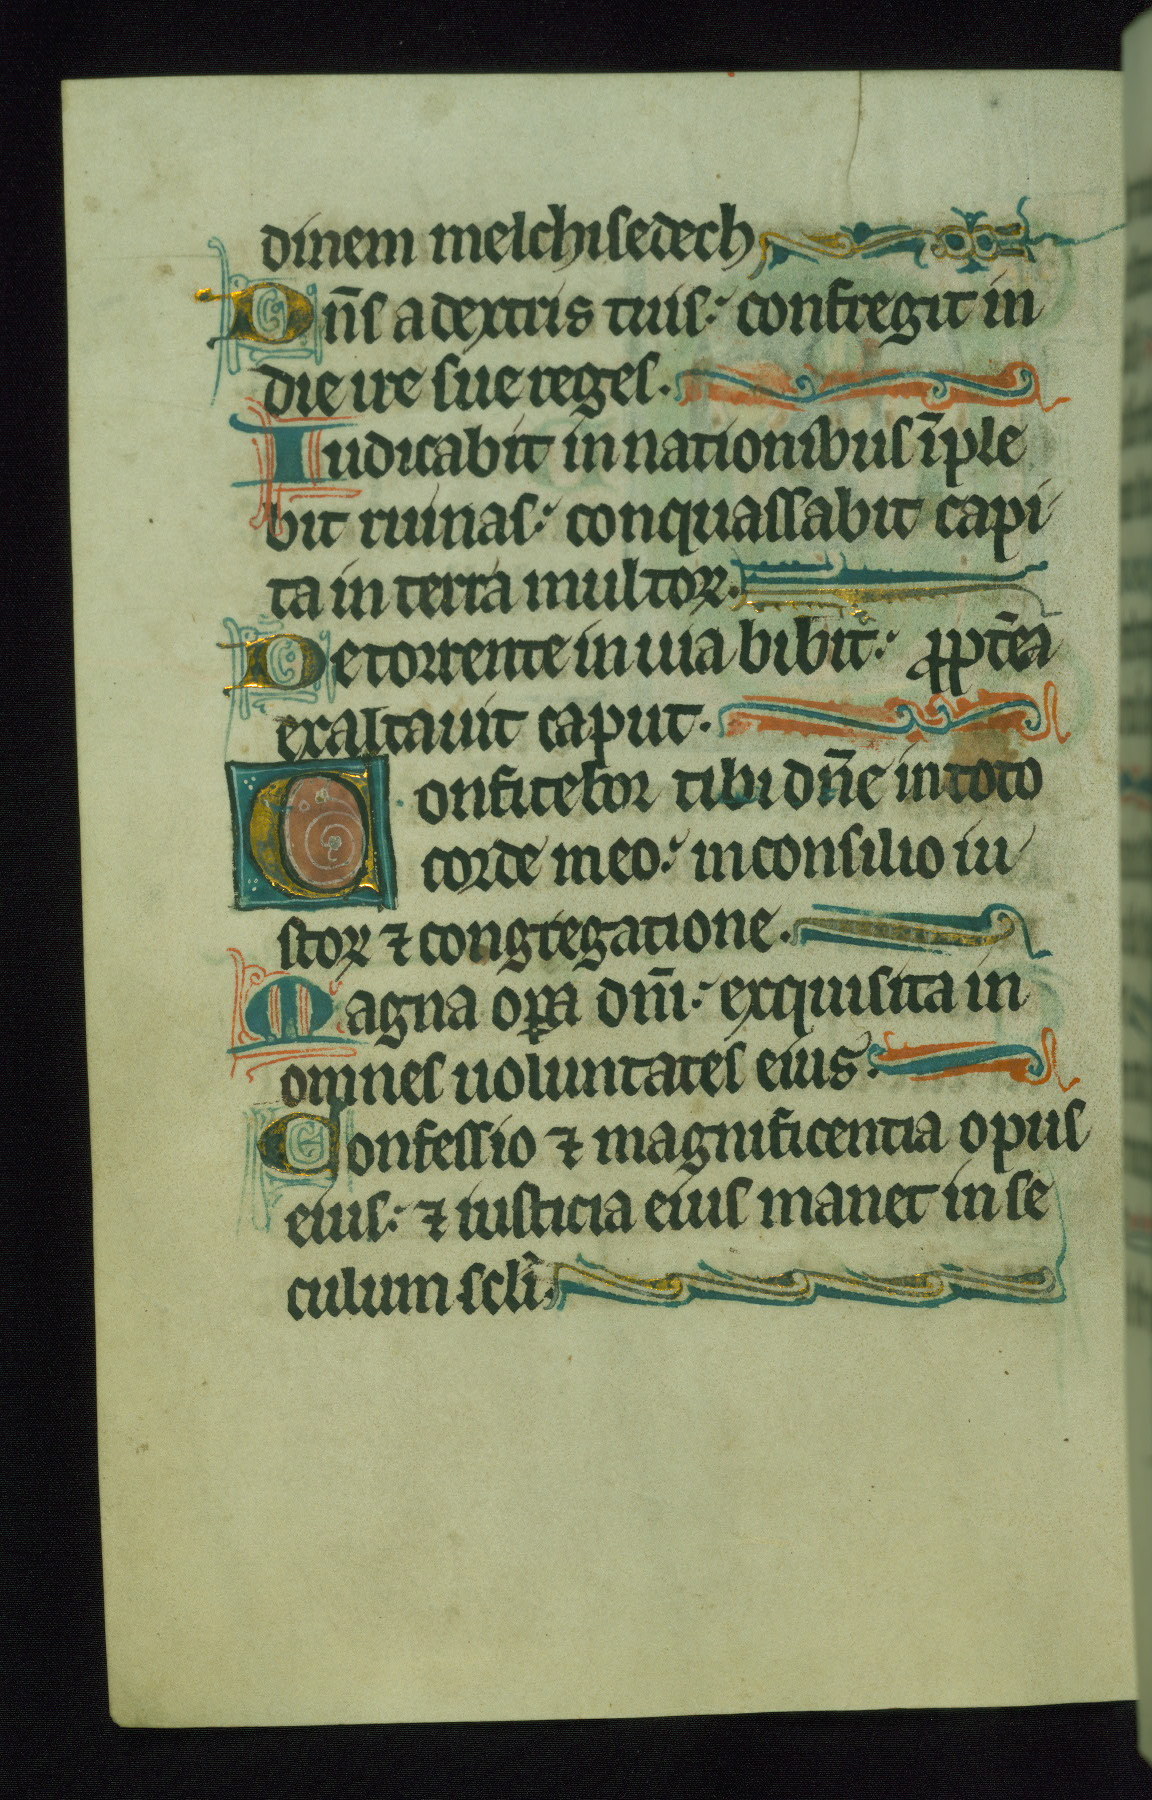 dinem melchisedech
Dn̄s a dextris tuis: confregit in
die ire sue reges.
Iudicabit in nationibus īple
bit ruinas: conquassabit capi
ta in terra multoꝝ.
De torrente in uia bibit: ꝓpt̄ea
exaltauit caput.
Confitebor tibi dn̄e in toto
corde meo: in consilio iu
stoꝝ ⁊ congregatione.
Magna oꝑa dn̄i: exquisita in
omnes uoluntates eius.
Confessio ⁊ magnificentia opus
eius: ⁊ iusticia eius manet in se
culum scl̄i.